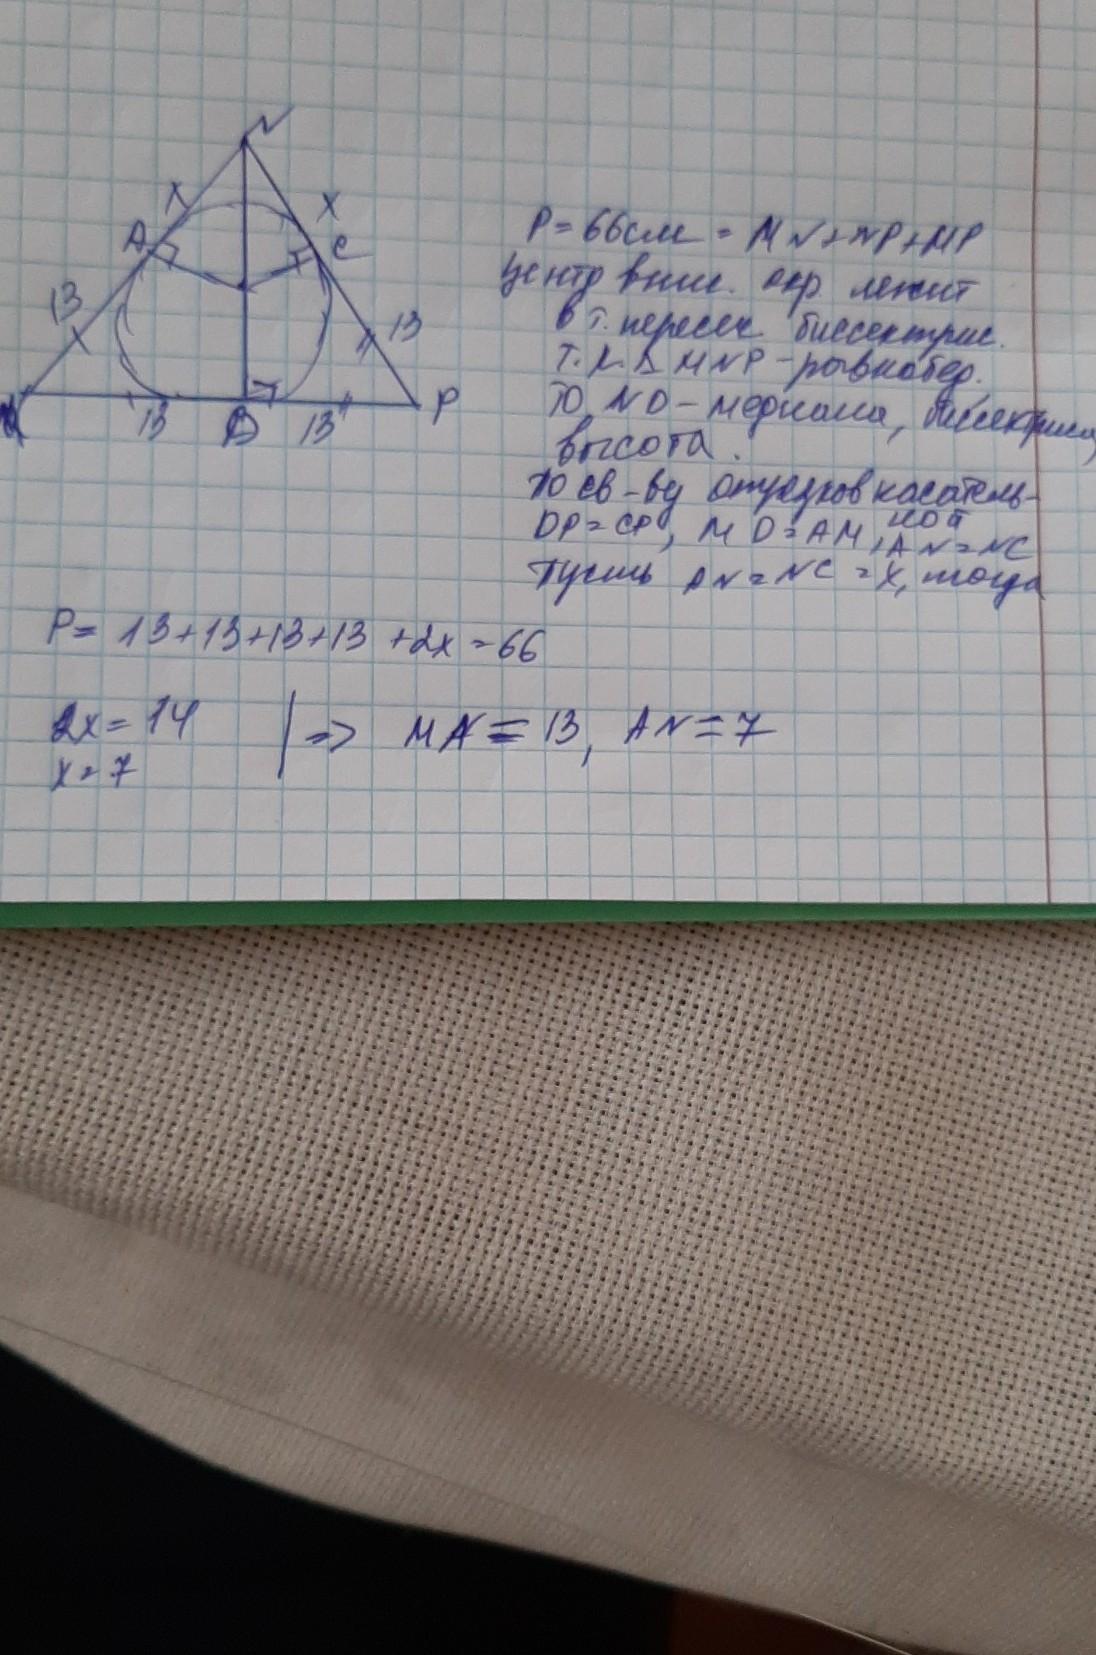 N
X
X
A
C
13
13
M
13
D
13
P
P = 66 см = MN+NP+MP
Центр впис. окр. лежит
в т. пересеч. биссектрис.
Т.к. Δ MNP - равнобед.
то ND - медиана, биссектриса,
высота.
По св-ву отрезков касатель-
ной
DP = CP, MD = AM, AN = NC
Пусть AN = NC = X, тогда
P = 13+13+13+13 +2x = 66
2x = 14
x = 7
=> MA = 13, AN = 7